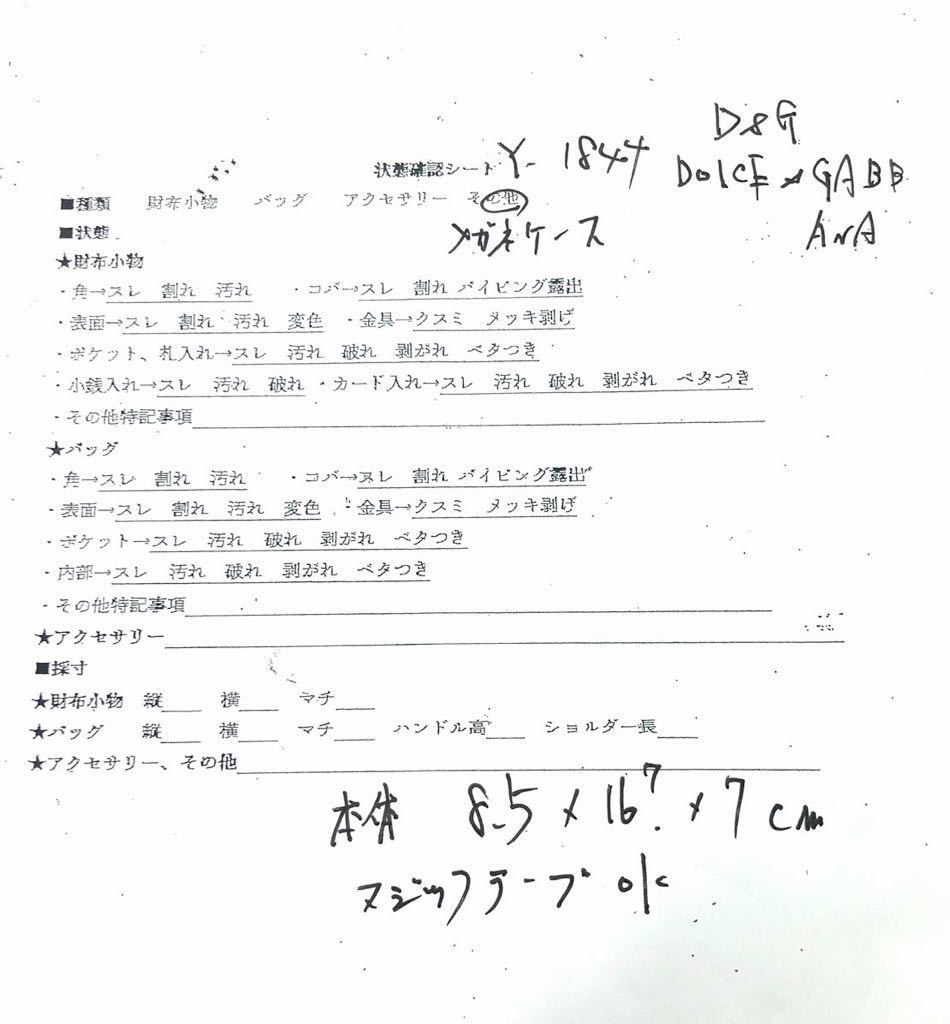 D&G
状態確認シート Y-1844
DOLCE & GABB
ANA
■種類 財布小物 バッグ アクセサリー その他
メガネケース
■状態
★財布小物
・角→スレ 割れ 汚れ ・コバ→スレ 割れ パイピング露出
・表面→スレ 割れ 汚れ 変色 ・金具→クスミ メッキ剥げ
・ポケット、札入れ→スレ 汚れ 破れ 剥がれ ベタつき
・小銭入れ→スレ 汚れ 破れ ・カード入れ→スレ 汚れ 破れ 剥がれ ベタつき
・その他特記事項
★バッグ
・角→スレ 割れ 汚れ ・コバ→スレ 割れ パイピング露出
・表面→スレ 割れ 汚れ 変色 ・金具→クスミ メッキ剥げ
・ポケット→スレ 汚れ 破れ 剥がれ ベタつき
・内部→スレ 汚れ 破れ 剥がれ ベタつき
・その他特記事項
★アクセサリー
■採寸
★財布小物 縦 横 マチ
★バッグ 縦 横 マチ ハンドル高 ショルダー長
★アクセサリー、その他
本体 8.5 x 16.7 x 7 cm
マジックテープ ok